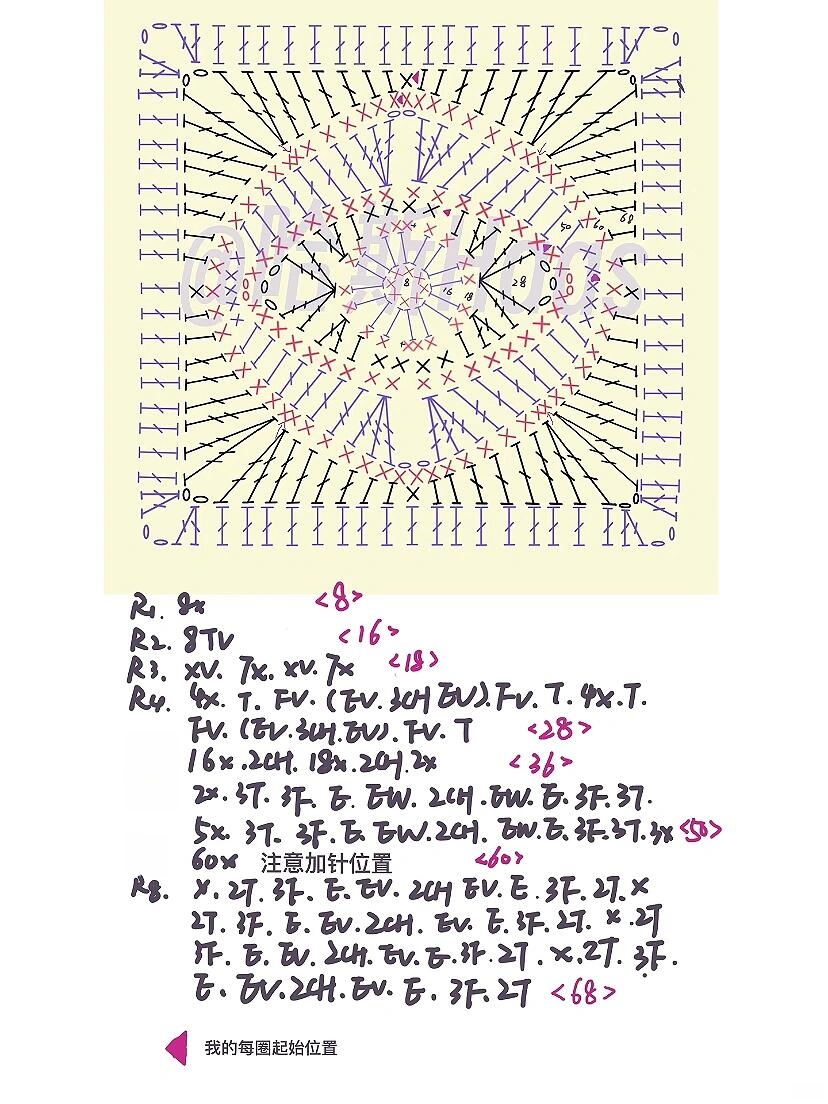 @哈斯Hoos
8
16
18
28
50
60
68
R1. 8x <8>
R2. 8TV <16>
R3. XV. 7X. XV. 7X <18>
R4. 4X. T. FV. (EV. 3CH EV). FV. T. 4X. T.
FV. (EV. 3CH. EV). FV. T <28>
16x. 2CH. 18x. 2CH. 2x <36>
2x. 3T. 3F. E. EW. 2CH. EW. E. 3F. 3T.
5x. 3T. 3F. E. EW. 2CH. EW. E. 3F. 3T. 3x <50>
60x 注意加针位置 <60>
R8. X. 2T. 3F. E. EV. 2CH EV. E. 3F. 2T. X
2T. 3F. E. EV. 2CH. EV. E. 3F. 2T. X. 2T
3F. E. EV. 2CH. EV. E. 3F. 2T. X. 2T. 3F.
E. EV. 2CH. EV. E. 3F. 2T <68>
我的每圈起始位置